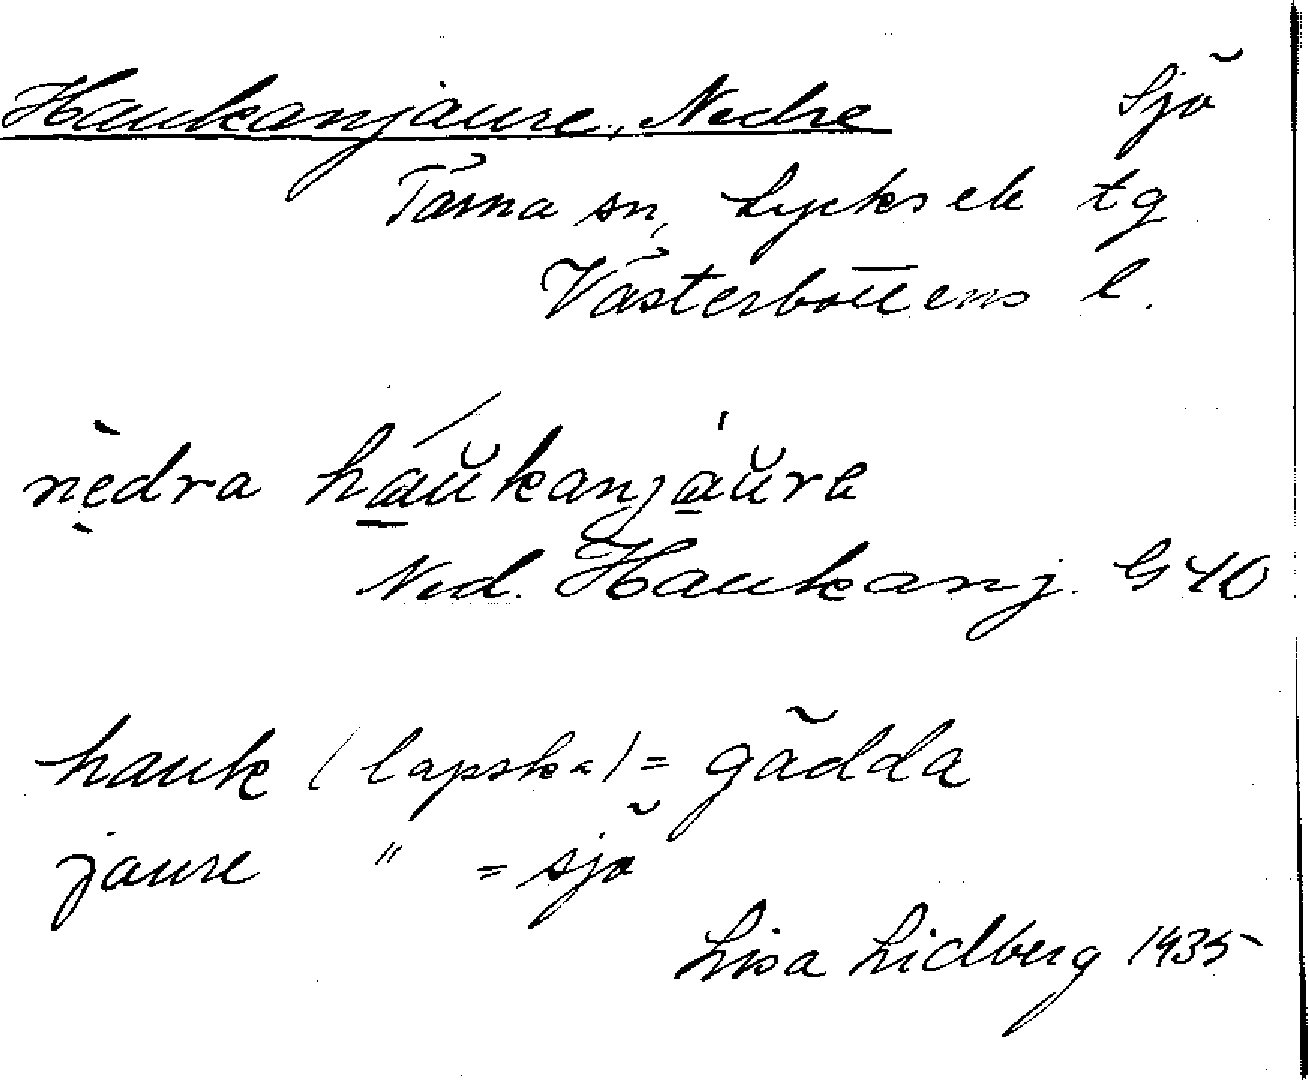 Haukanjaure, Nedre Sjö
Tärna sn, Lycksele tg
Västerbottens l.
nèdra háŭkanjàŭre
Ned. Haukanj. G40
hauk (lapska) = gädda
jaure " = sjö
Lisa Lidberg 1935